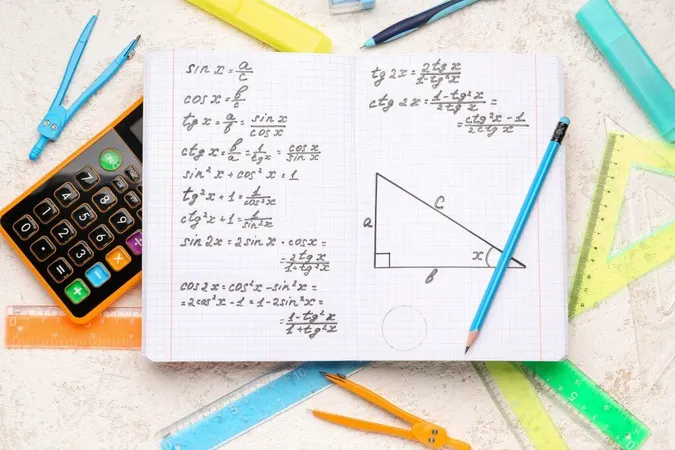 sin x = a/c
cos x = b/c
tg x = a/b = sin x/cos x
ctg x = b/a = 1/tg x = cos x/sin x
sin² x + cos² x = 1
tg² x + 1 = 1/cos² x
ctg² x + 1 = 1/sin² x
sin 2x = 2 sin x · cos x =
= 2 tg x/1 + tg² x
cos 2x = cos² x - sin² x =
= 2 cos² x - 1 = 1 - 2 sin² x =
= 1 - tg² x/1 + tg² x
tg 2x = 2 tg x/1 - tg² x
ctg 2x = 1 - tg² x/2 tg x =
= ctg² x - 1/2 ctg x
a
c
x
b
7
8
9
4
5
6
1
2
3
0
=
+
-
×
÷